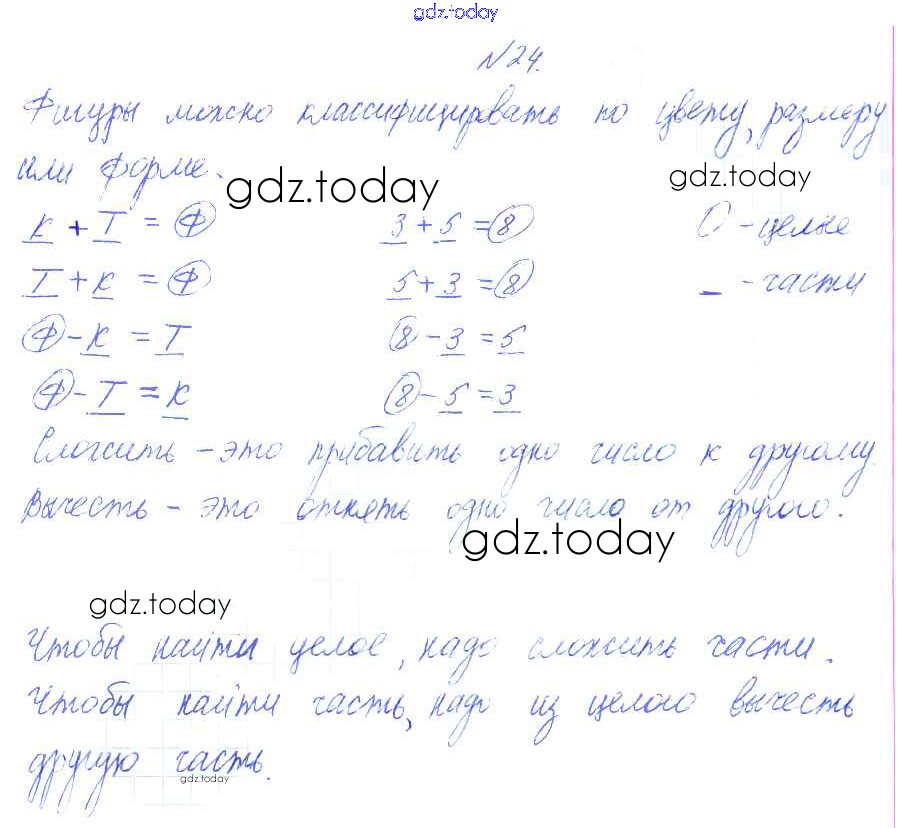 gdz.today
№24.
Фигуры можно классифицировать по цвету, размеру
или форме.
gdz.today gdz.today
К + Т = Ф 3 + 5 = 8 О - целые
Т + К = Ф 5 + 3 = 8 _ - части
Ф - К = Т 8 - 3 = 5
Ф - Т = К 8 - 5 = 3
Сложить - это прибавить одно число к другому.
Вычесть - это отнять одно число от другого.
gdz.today
gdz.today
Чтобы найти целое, надо сложить части.
Чтобы найти часть, надо из целого вычесть
другую часть.
gdz.today